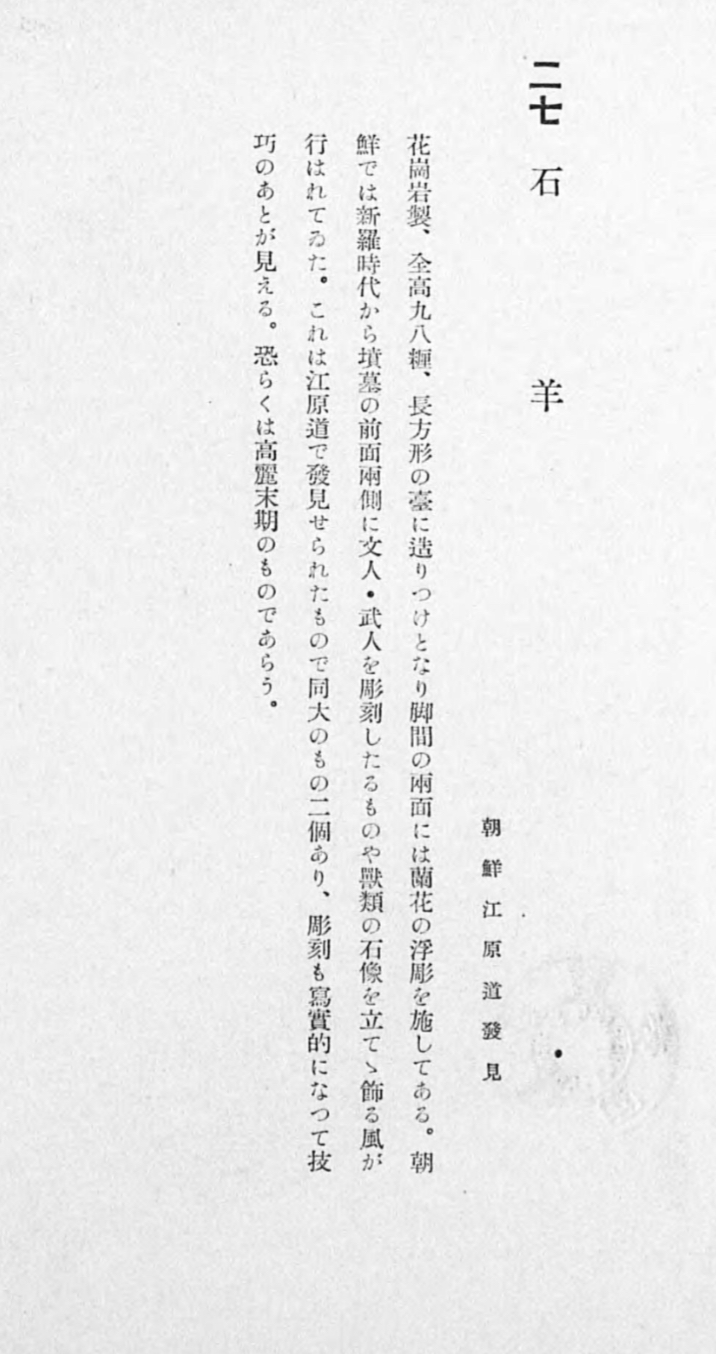 二七 石羊
朝鮮江原道發見
花崗岩製、全高九八糎、長方形の臺に造りつけとなり脚間の兩面には蘭花の浮彫を施してある。朝
鮮では新羅時代から墳墓の前面兩側に文人・武人を彫刻したるものや獸類の石像を立てゝ飾る風が
行はれてゐた。これは江原道で發見せられたもので同大のもの二個あり、彫刻も寫實的になつて技
巧のあとが見える。恐らくは高麗末期のものであらう。